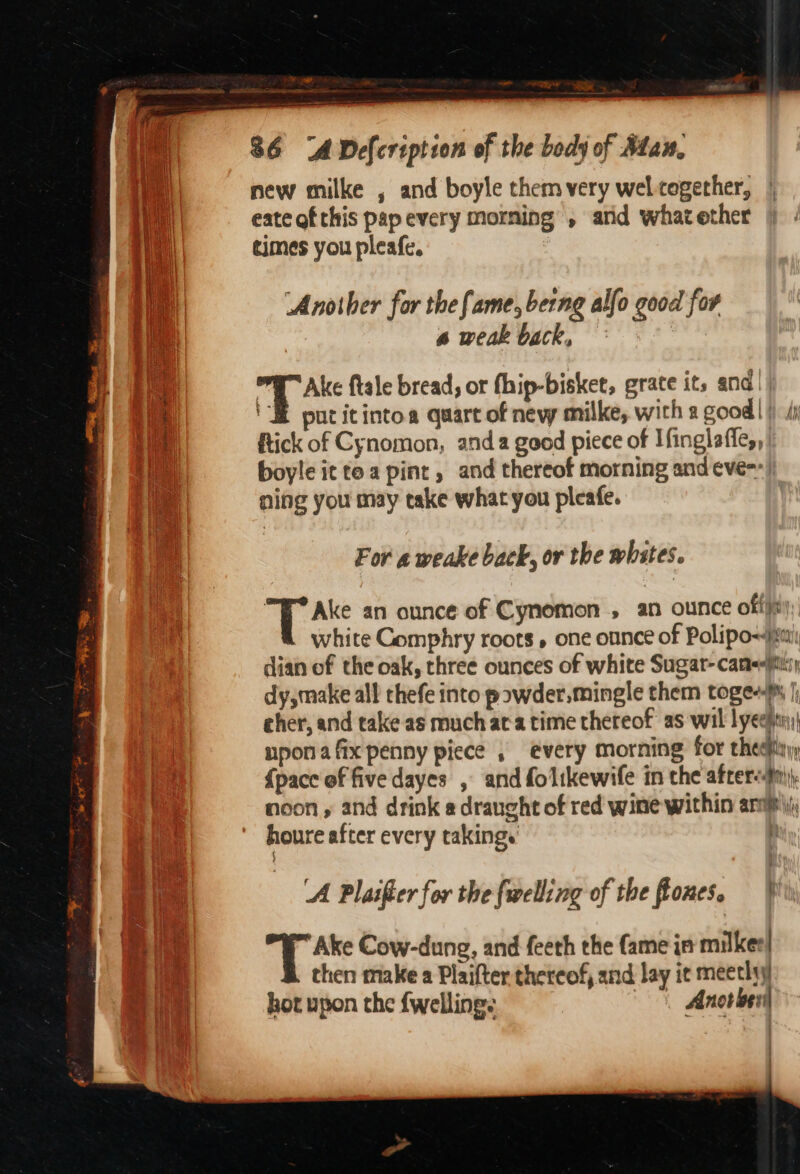 86 A Deſcription of the body of Man,
new milke , and boyle them very wel together,
eate of this pap every morning , and what other
times you pleaſe.
Another for the ſame, being alſo good for
a weak back,
TAke ſtale bread, or ſhip-bisket, grate it, and
put it into a quart of new milke, with a good
ſtick of Cynomon, and a good piece of Iſinglaſſe,
boyle it to a pint , and thereof morning and eve-
ning you may take what you pleaſe.
For a weake back, or the whites.
TAke an ounce of Cynomon , an ounce of
white Comphry roots , one ounce of Polipo-
dian of the oak, three ounces of white Sugar-can-
dy,make all theſe into powder,mingle them toge-
ther, and take as much at a time thereof as wil lye
upon a ſix penny piece , every morning for the
ſpace of five dayes , and ſo likewiſe in the after-
noon , and drink a draught of red wine within an
houre after every taking.
A Plaiſter for the ſwelling of the ſtones.
TAke Cow-dung, and ſeeth the ſame in milke
then make a Plaiſter thereof, and lay it meetly
hot upon the ſwelling.
Another